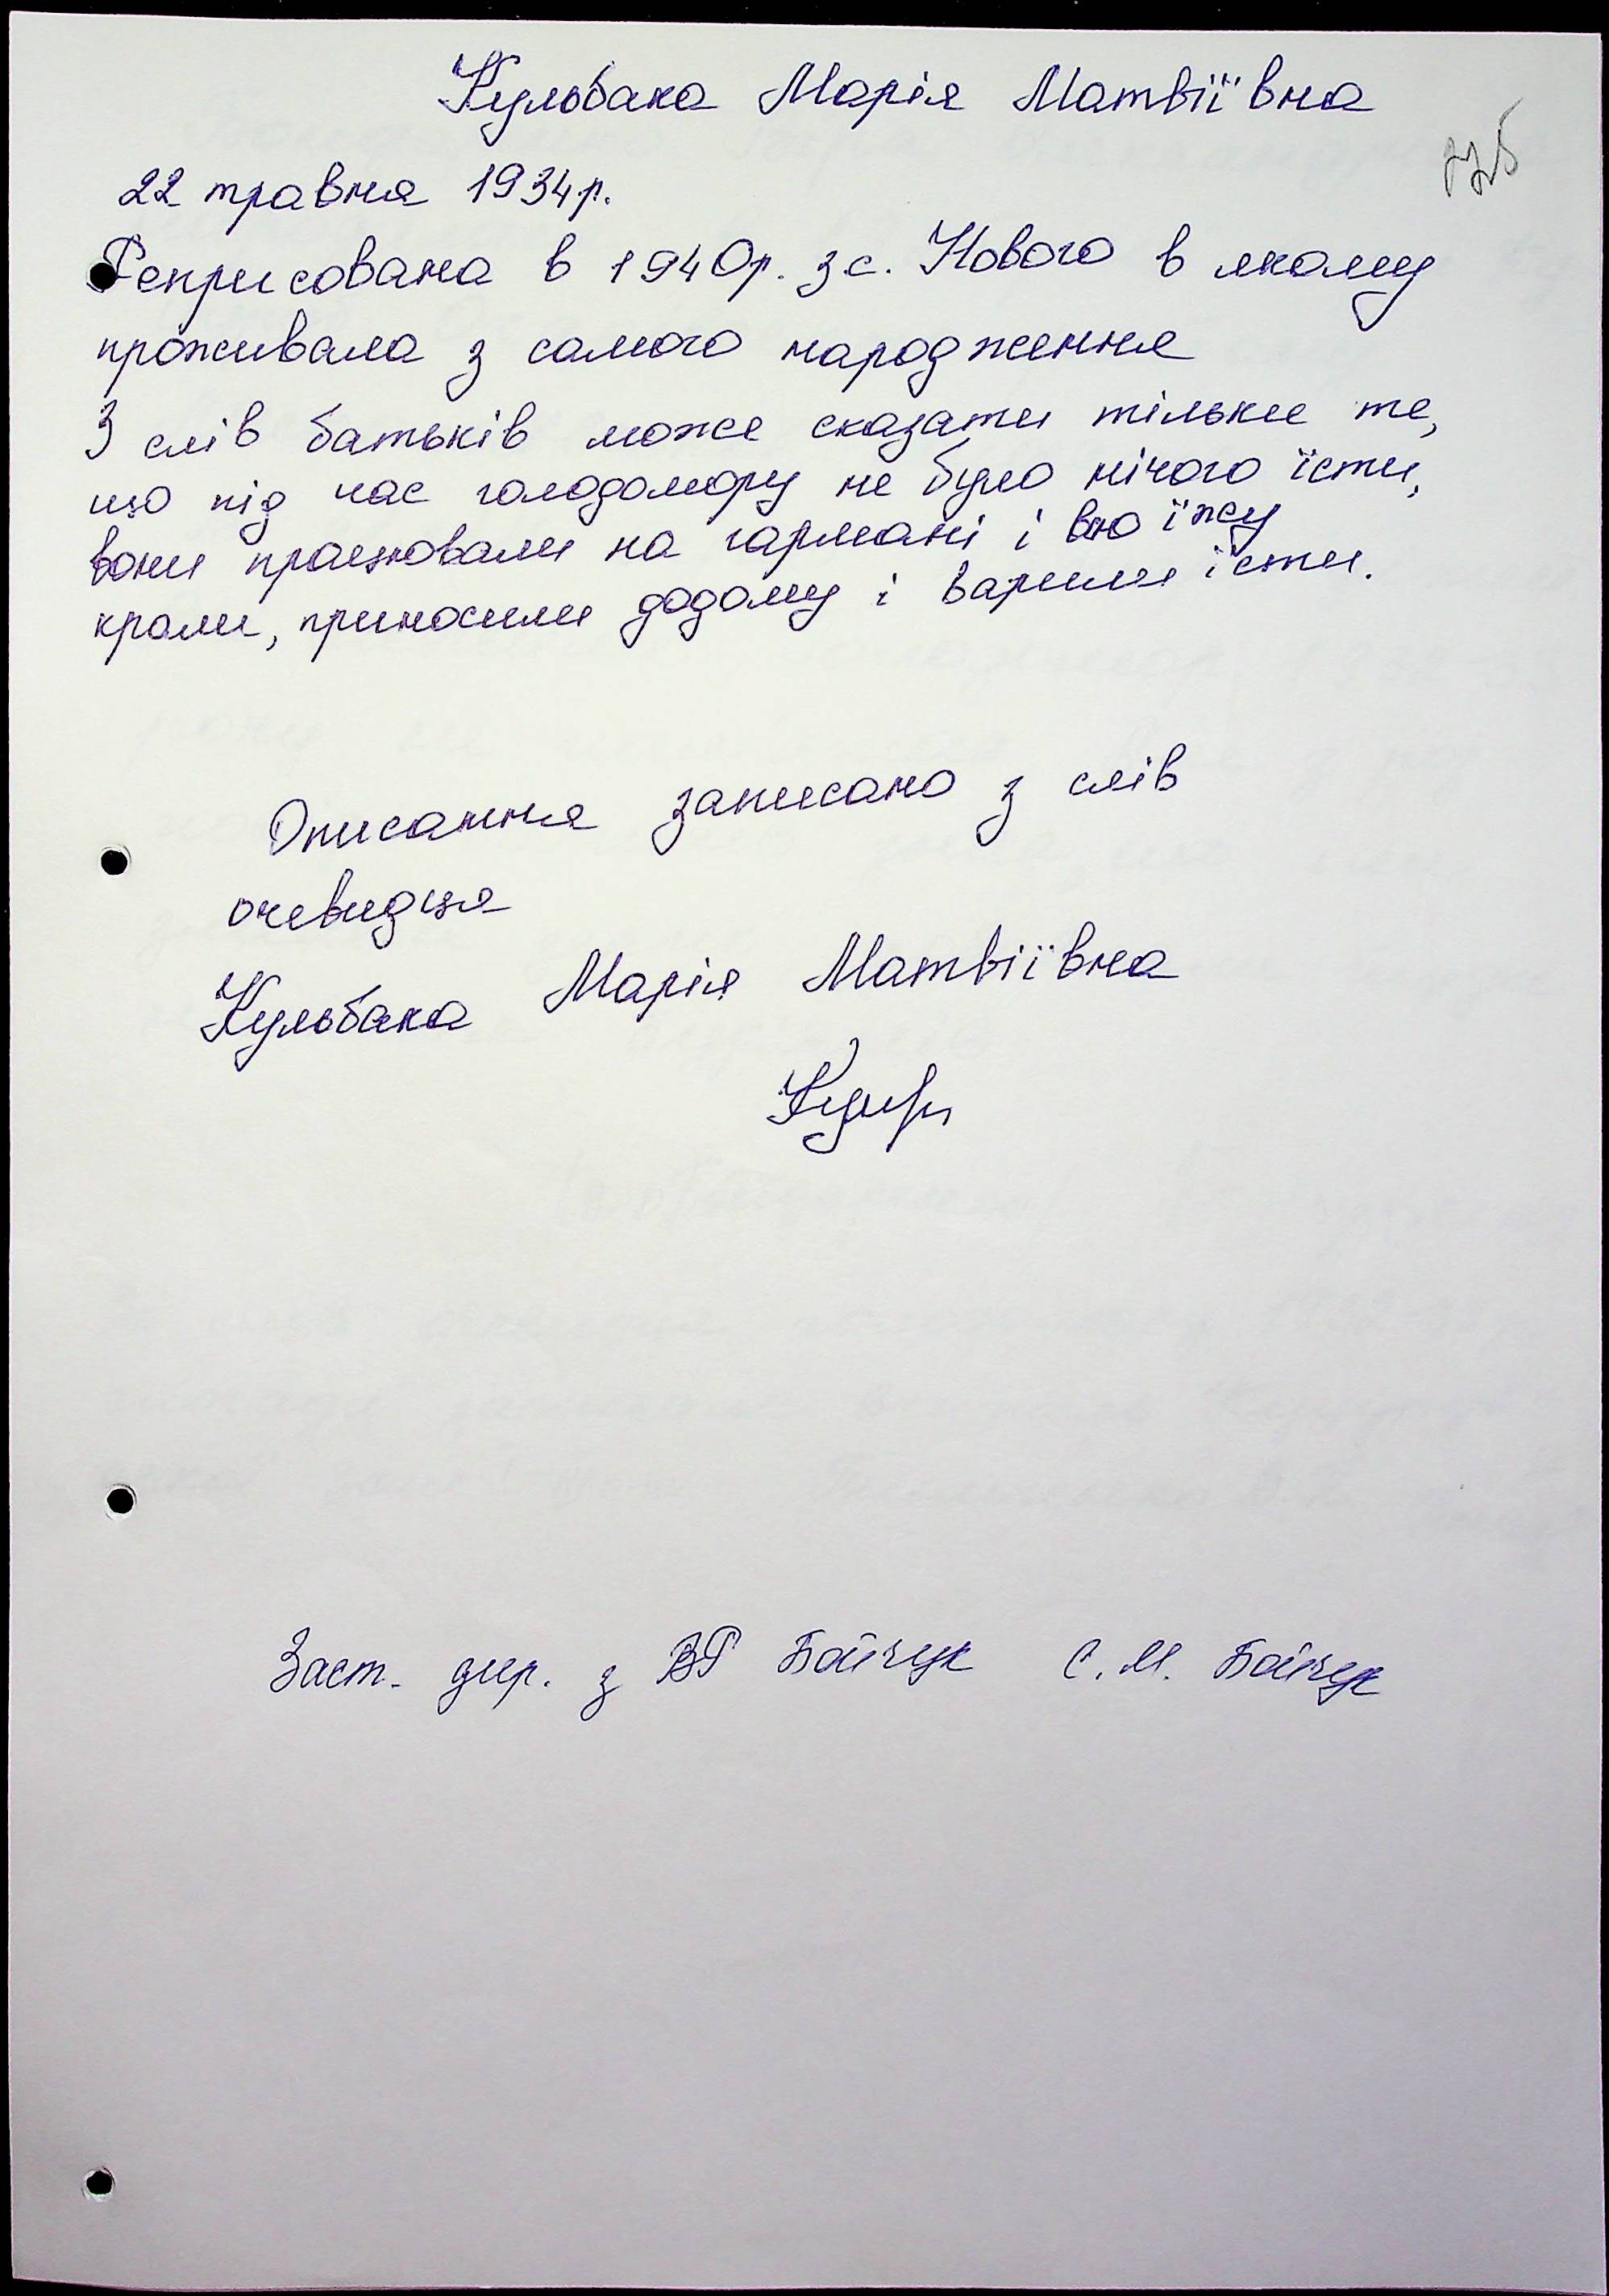 Кульбака Марія Матвіївна
725
22 травня 1934р.
Реприсована в 1940р. з с. Нового в якому
проживала з самого народження
З слів батьків може сказати тільки те,
що під час голодомору не було нічого їсти,
вони працювали на гармані і всю їжу
крали, приносили додому і варили їсти.
Описання записано з слів
очевидця
Кульбака Марія Матвіївна
Заст. дир. з ВР Бойчук С. М. Бойчук